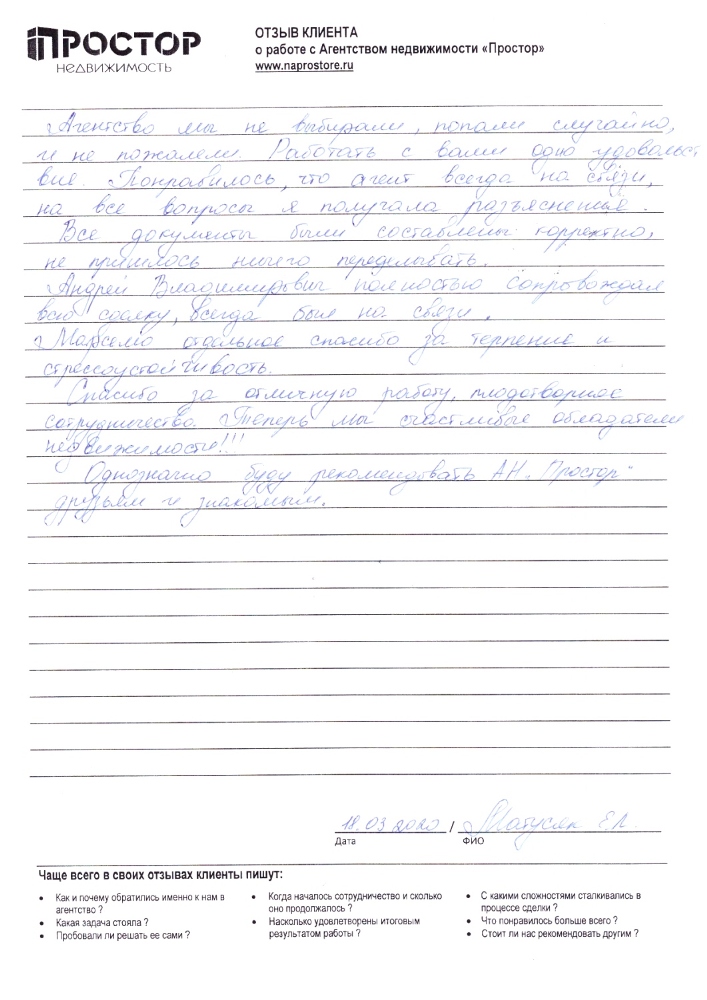 ПРОСТОР
НЕДВИЖИМОСТЬ
ОТЗЫВ КЛИЕНТА
о работе с Агентством недвижимости «Простор»
www.naprostore.ru
Агентство мы не выбирали, попали случайно,
и не пожалели. Работать с вами одно удовольст
вие. Понравилось, что агент всегда на связи,
на все вопросы я получала разъяснение.
Все документы были составлены корректно,
не пришлось ничего переделывать.
Андрей Владимирович полностью сопровождал
всю сделку, всегда был на связи.
отдельное спасибо за терпение и
стрессоустойчивость.
Спасибо за отличную работу, плодотворное
сотрудничество. Теперь мы счастливые обладатели
недвижимости!!!
Однозначно буду рекомендовать АН „Простор"
друзьям и знакомым.
18.03.2020 / Матусяк Е.Л.
Дата ФИО
Чаще всего в своих отзывах клиенты пишут:
• Как и почему обратились именно к нам в
агентство ?
• Какая задача стояла ?
• Пробовали ли решать ее сами ?
• Когда началось сотрудничество и сколько
оно продолжалось ?
• Насколько удовлетворены итоговым
результатом работы ?
• С какими сложностями сталкивались в
процессе сделки ?
• Что понравилось больше всего ?
• Стоит ли нас рекомендовать другим ?